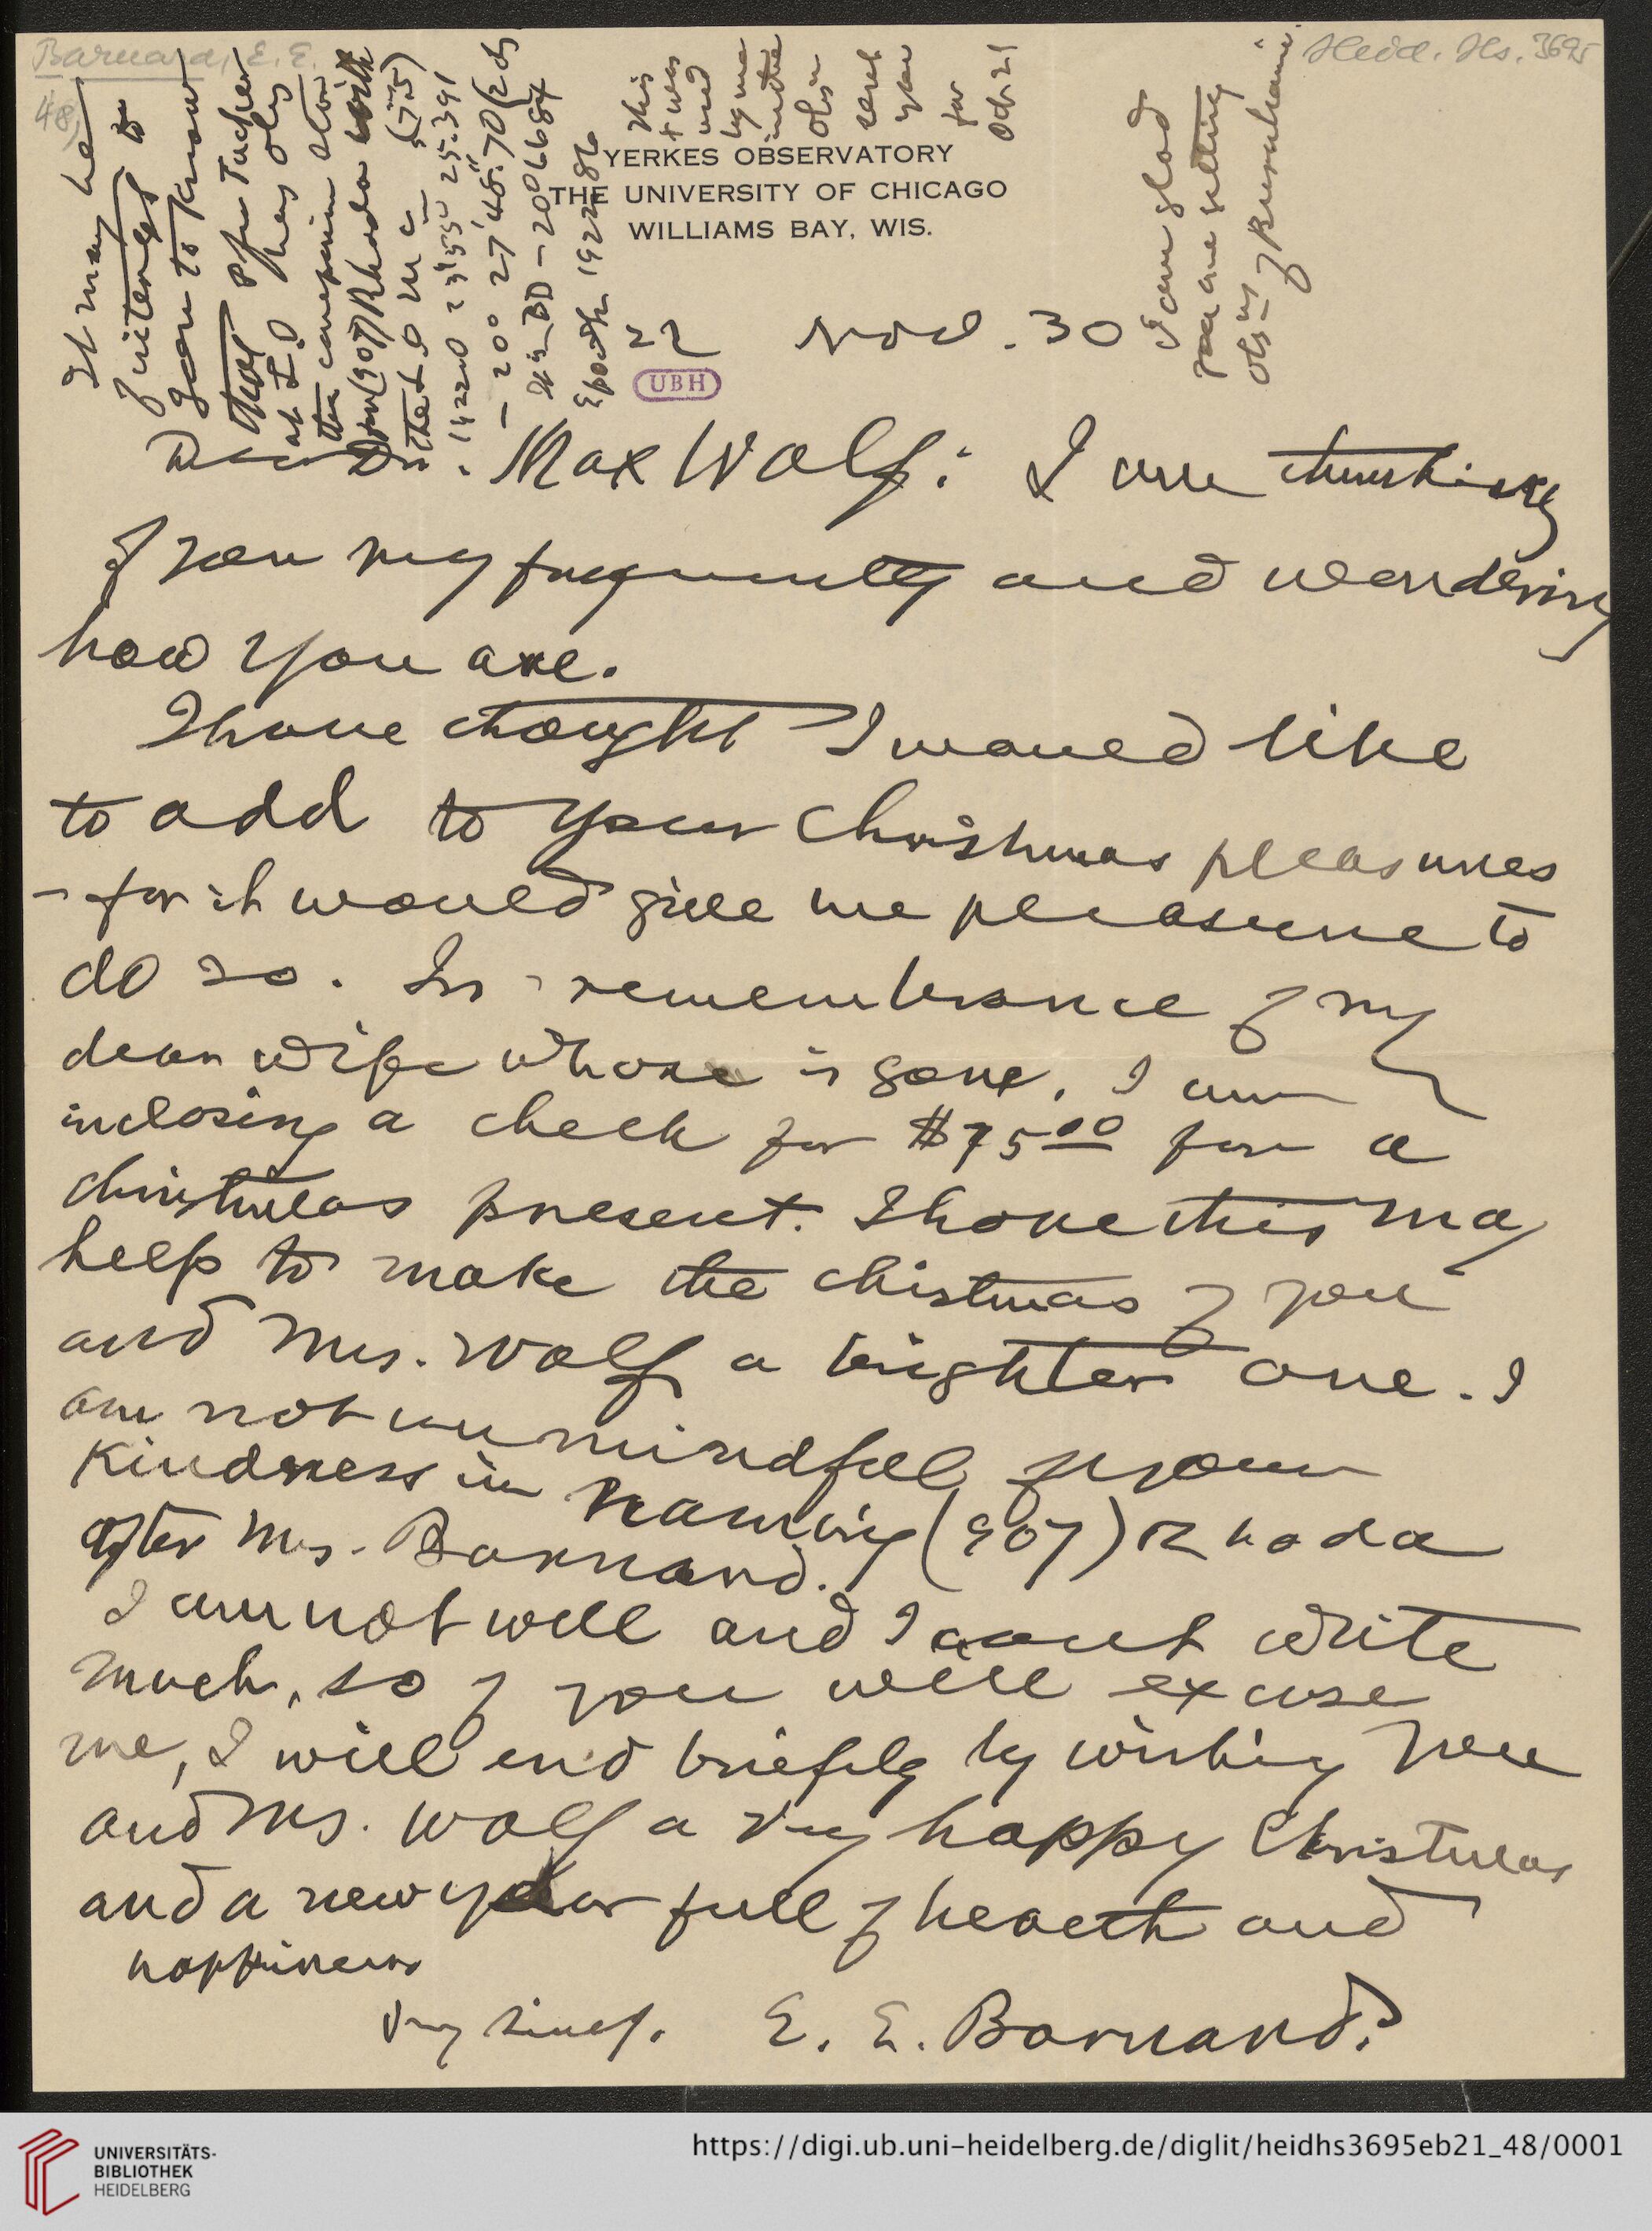 Barnard, E. E.
Heid. Hs. 3695
48
YERKES OBSERVATORY
THE UNIVERSITY OF CHICAGO
WILLIAMS BAY, WIS.
22 Nov. 30
UBH
It may be
of interest to
you to know
that Pfr Tucker
at L.O has obs
the comparison star
for (907) Rhoda with
the L.O M C
1922.0 23h55m 25s.391
- 20° 27' 48".70
BD - 20° 6684
Epoch 1922.86
This
* was
used
by me
in the
obsn
sent
you
for
Oct. 21
I am glad
you are getting
obsns of
Dear Dr. Max Wolf: I am thinking
of you very frequently and wondering
how you are.
I have thought I would like
to add to your Christmas pleasures
- for it would give me pleasure to
do so. In remembrance of my
dear wife who is gone, I am
inclosing a check for $75.00 for a
christmas present. I hope this may
help to make the christmas of you
and Mrs. Wolf a brighter one. I
am not unmindful of your
kindness in naming (907) Rhoda
after Mrs. Barnard.
I am not well and I cant write
much, so if you will excuse
me, I will end briefly by wishing you
and Mrs. Wolf a very happy Christmas
and a new year full of health and
happiness
Very sincey. E. E. Barnard.
UNIVERSITÄTS-
BIBLIOTHEK
HEIDELBERG
https://digi.ub.uni-heidelberg.de/diglit/heidhs3695eb21_48/0001